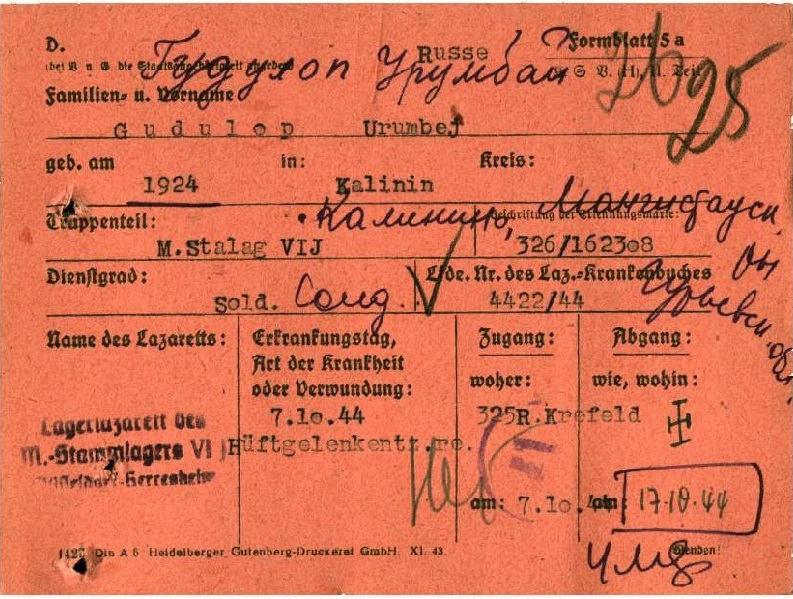 D. Russe Formblatt 5 a
Гудулоп Урумбай
26 25
Familien- u. Vorname
Gudulop Urumbej
geb. am in: Kreis:
1924 Kalinin
Калинино, Мангистауск.
Truppenteil: Beschriftung der Erkennungsmarke:
M.Stalag VIJ 326/162308
Dienstgrad: Lfde. Nr. des Laz.-Krankenbuches
Sold. Солд. 4422/44
Гурьевск. обл.
Name des Lazaretts: Erkrankungstag, Zugang: Abgang:
Art der Krankheit
oder Verwundung: woher: wie, wohin:
7.10.44 325R.Krefeld
Lagerlazarett des
M.-Stammlagers VI J Hüftgelenkentz.re.
am: 7.10.44 am: 17.10.44
1427 Din A 6 Heidelberger Gutenberg-Druckerei GmbH. XI. 43. Wenden!